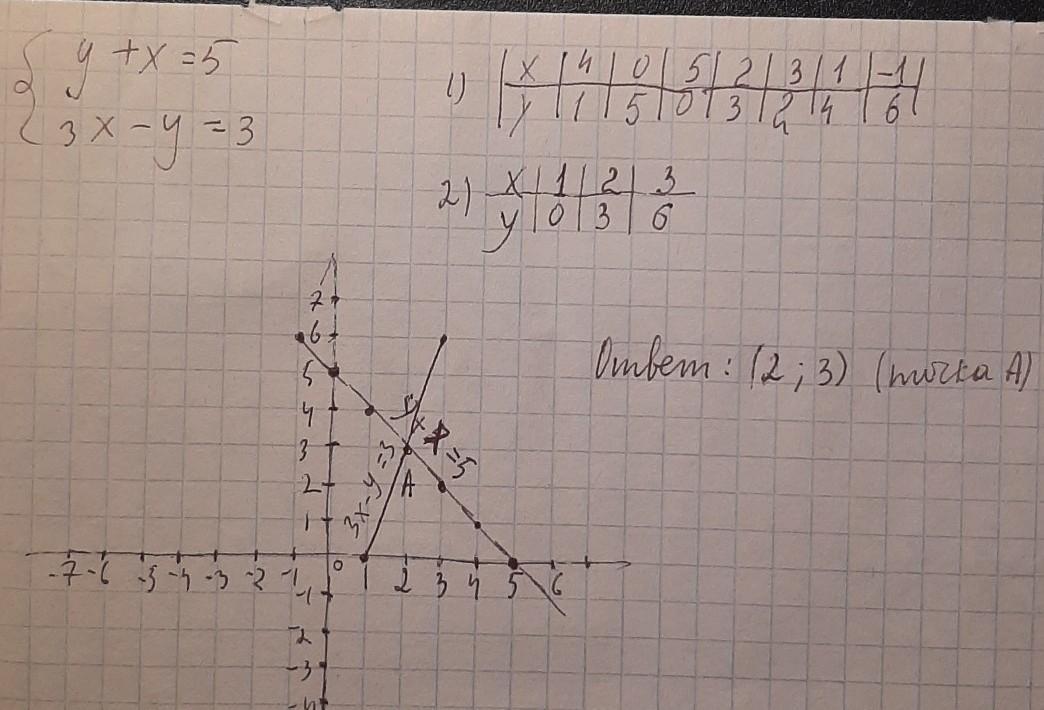 y + x = 5
3x - y = 3
1) x | 4 | 0 | 5 | 2 | 3 | 1 | -1
y | 1 | 5 | 0 | 3 | 2 | 4 | 6
2) x | 1 | 2 | 3
y | 0 | 3 | 6
7
6
5
4
3
2
1
Ответ: (2; 3) (точка A)
3x-y=3
A
-7 -6 -5 -4 -3 -2 -1 0 1 2 3 4 5 6
-1
-2
-3
-4